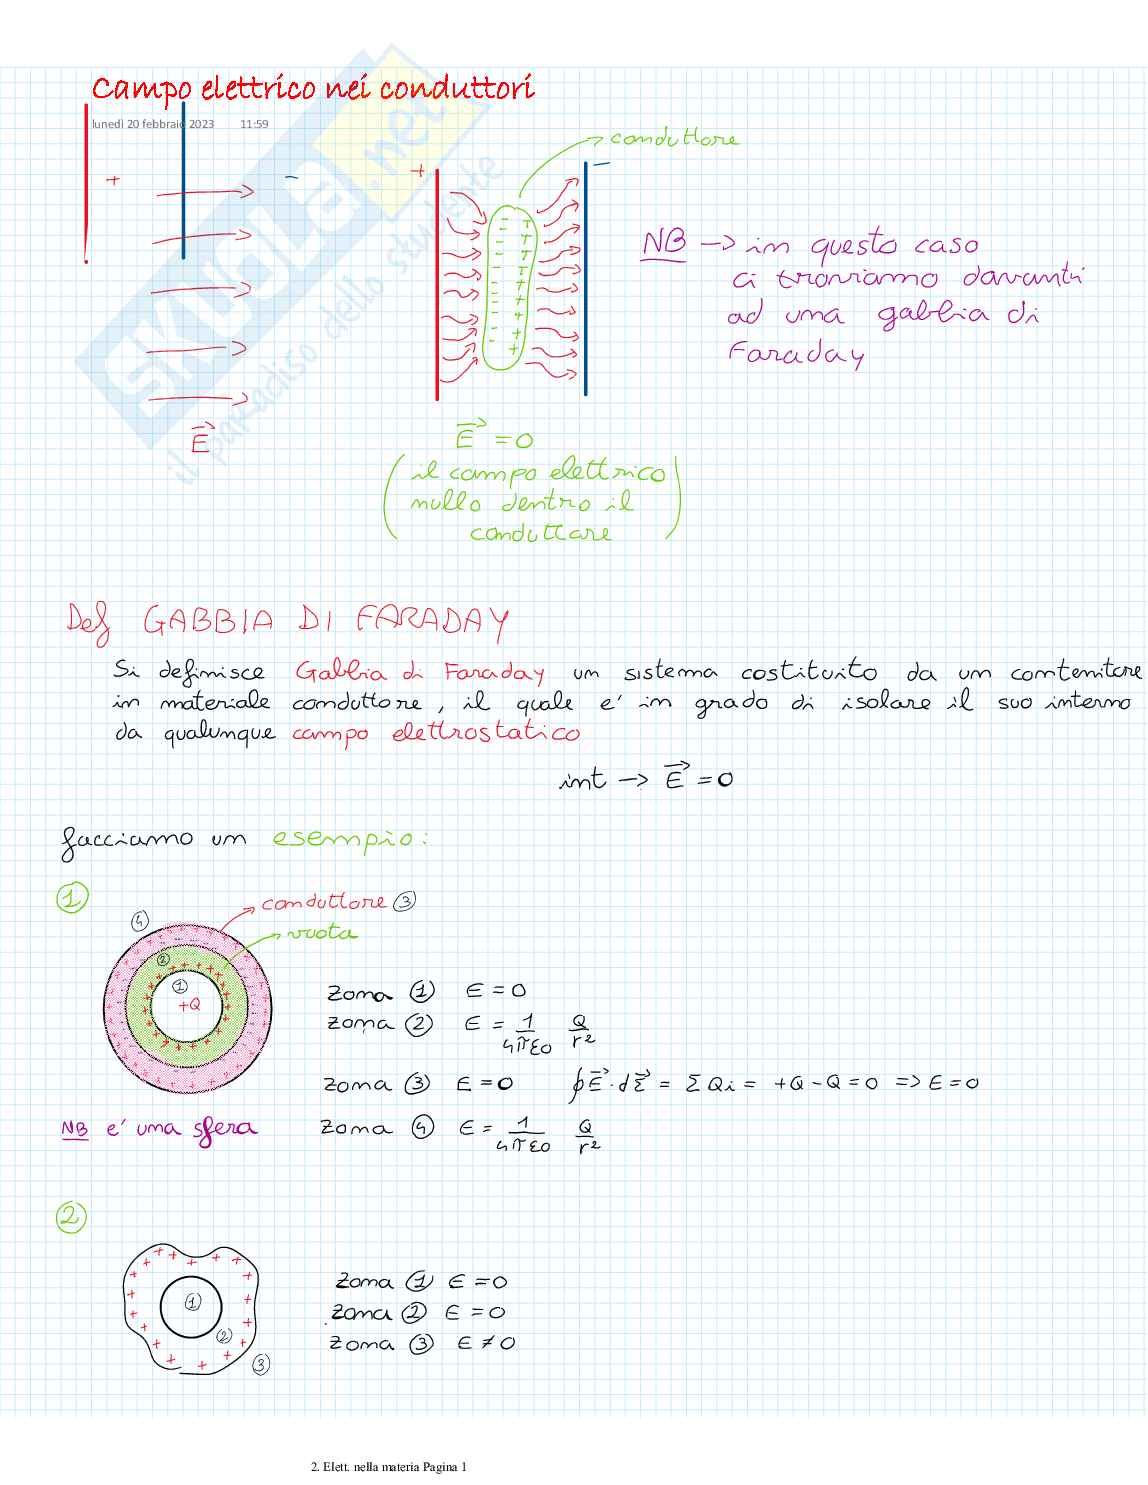 Campo elettrico nei conduttori
lunedì 20 febbraio 2023 11:59
+ -
E
+ -
conduttore
E = 0
(il campo elettrico
nullo dentro il
conduttore)
NB -> in questo caso
ci troviamo davanti
ad una gabbia di
Faraday
SKUOLA.net
il paradiso dello studente
Def GABBIA DI FARADAY
Si definisce Gabbia di Faraday un sistema costituito da un contenitore
in materiale conduttore, il quale e' in grado di isolare il suo interno
da qualunque campo elettrostatico
int -> E = 0
facciamo un esempio:
①
④
conduttore ③
vuota
②
①
+Q
NB e' una sfera
zona ① E = 0
zona ② E = 1/4πε0 Q/r²
zona ③ E = 0 ∮E·dΣ = ΣQi = +Q-Q = 0 => E = 0
zona ④ E = 1/4πε0 Q/r²
②
①
②
③
zona ① E = 0
zona ② E = 0
zona ③ E ≠ 0
2. Elett. nella materia Pagina 1